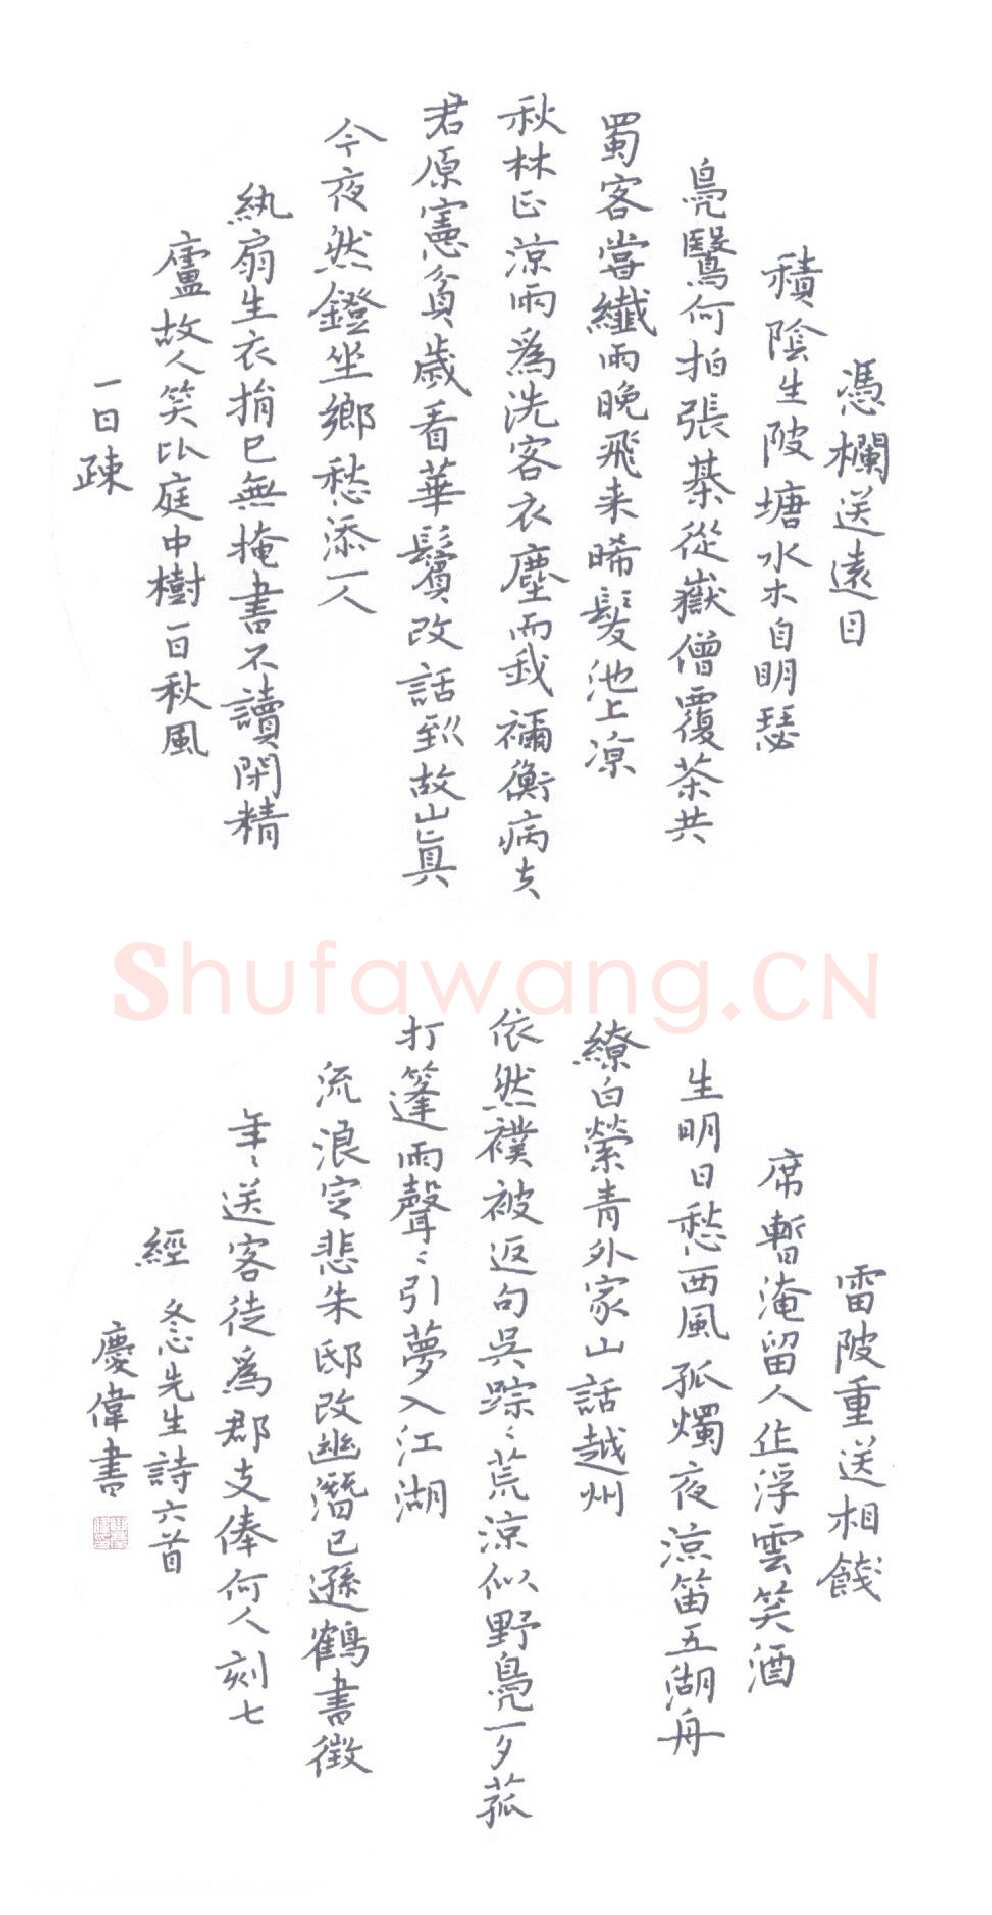 憑欄送遠目
積陰生陂塘水木自明瑟
鳧鷖何拍張棊從嶽僧覆茶共
蜀客當纖雨晚飛来晞髮池上涼
秋林正涼雨為洗客衣塵而我禰衡病夫
君原憲貧歲看華鬢改話到故山真
今夜然鐙坐鄉愁添一人
紈扇生衣捐已無掩書不讀閉精
廬故人笑比庭中樹一日秋風
一日疎
Shufawang.CN
雷陂重送相餞
席暫淹留人作浮雲笑酒
生明日愁西風孤燭夜涼笛五湖舟
繚白縈青外家山話越州
依然襆被返句吳踪〻荒涼似野鳧一夕菰
打篷雨聲〻引夢入江湖
流浪定悲朱邸改幽潛已遜鶴書徵
年〻送客徒為郡支俸何人刻七
經 冬心先生詩六首
慶偉書